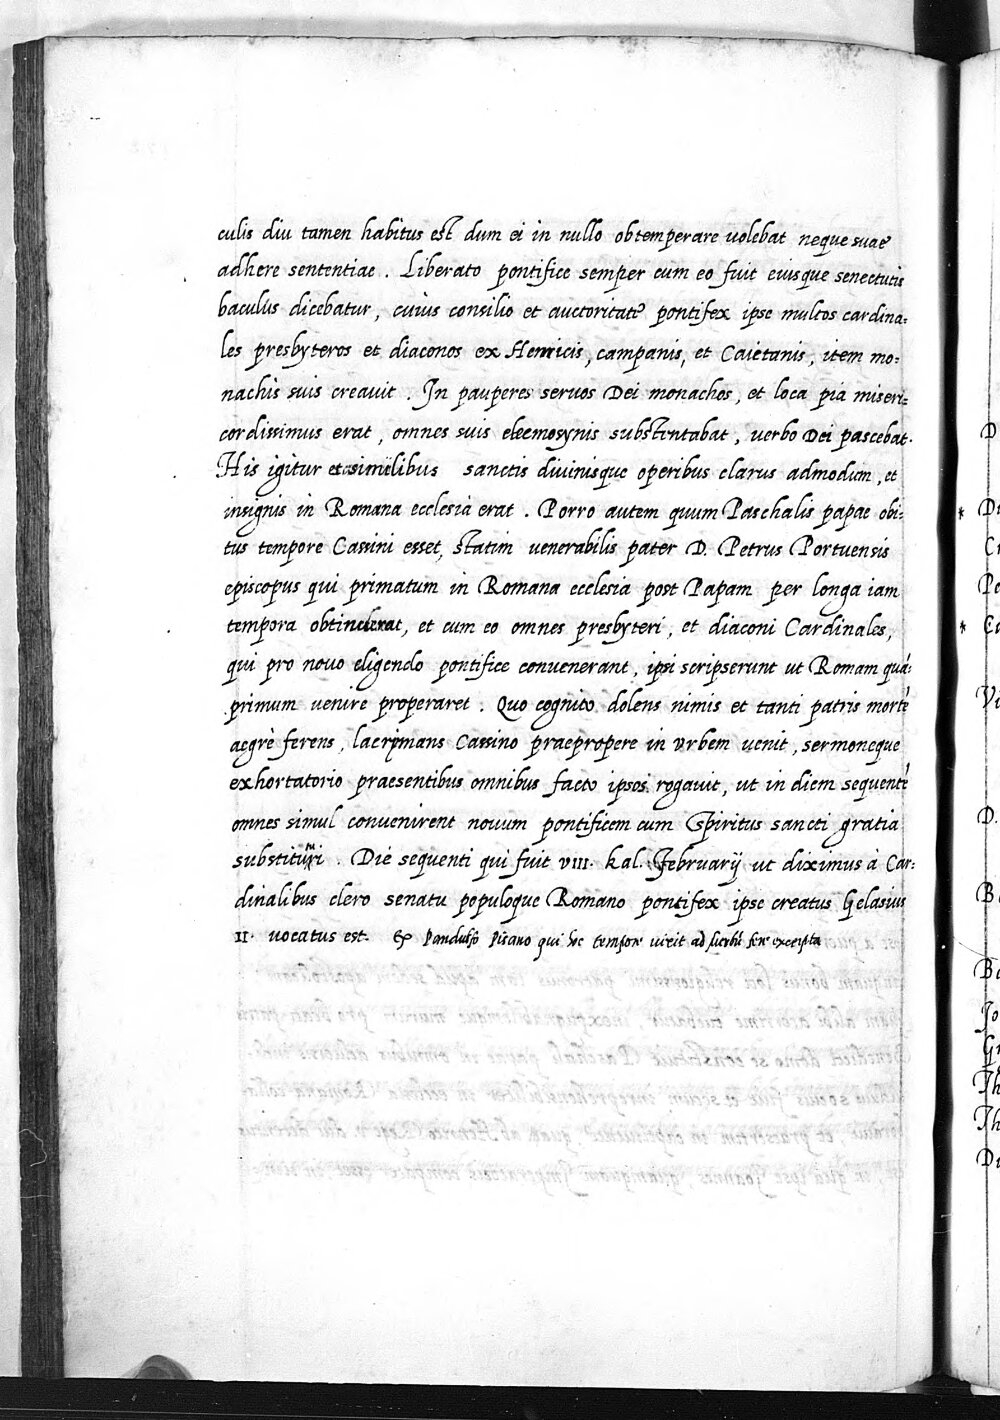 culis diu tamen habitus est dum ei in nullo obtemperare uolebat neque suae
adhere sententiae. Liberato pontifice semper cum eo fuit eiusque senectutis
baculus dicebatur, cuius consilio et auctoritate pontifex ipse multos cardina:
les presbyteros et diaconos ex Henricis, campanis, et Caietanis, item mo:
nachis suis creauit. In pauperes seruos Dei monachos, et loca pia miseri:
cordissimus erat, omnes suis eleemosynis substentabat, uerbo Dei pascebat.
His igitur et similibus sanctis diuinisque operibus clarus admodum, et
insignis in Romana ecclesia erat. Porro autem quum Paschalis papae obi:
tus tempore Cassini esset, statim uenerabilis pater D. Petrus Portuensis
episcopus qui primatum in Romana ecclesia post Papam per longa iam
tempora obtinuerat, et cum eo omnes presbyteri, et diaconi Cardinales,
qui pro nouo eligendo pontifice conuenerant, ipsi scripserunt ut Romam quá:
primum uenire properaret. Quo cognito dolens nimis et tanti patris morté
aegrè ferens, lacrymans Cassino praepropere in urbem uenit, sermoneque
exhortatorio praesentibus omnibus facto ipsos rogauit, ut in diem sequenté
omnes simul conuenirent nouum pontificem cum Spiritus sancti gratia
substituri. Die sequenti qui fuit VIII. kal. Februarij ut diximus à Car:
dinalibus clero senatu populoque Romano pontifex ipse creatus Gelasius
II. uocatus est. Ex Pandulfo Pisano qui hoc tempore uixit ad fere excerpta
D
* Di
Cr
Pe
* Ca
Vi
D.
Ba
Ba
Jo
Gr
Th
Th
Di